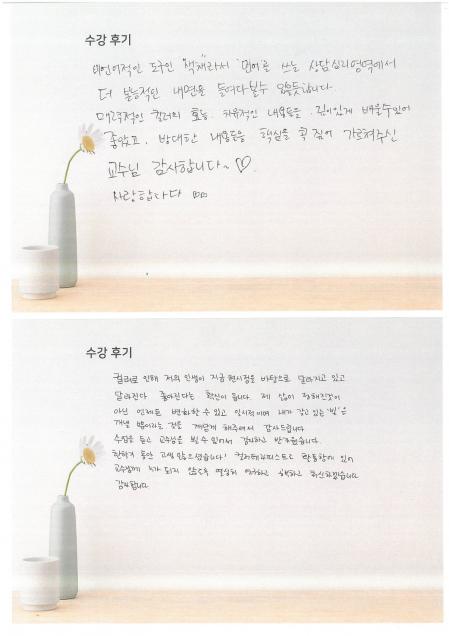 수강 후기
비언어적인 도구인 "색채"라서 '언어'를 쓰는 상담심리영역에서
더 본능적인 내면을 들여다볼수 있을듯합니다.
매력적인 컬러의 효능, 치유적인 내용들을 깊이있게 배울수있어
좋았고, 방대한 내용들을 핵심을 콕 짚어 가르쳐주신
교수님 감사합니다~ ♡
사랑합니다
수강 후기
컬러로 인해 저의 인생이 지금 현시점을 바탕으로 달라지고 있고
달라진다 좋아진다는 확신이 듭니다. 제 삶이 정해진것이
아닌 언제든 변화할 수 있고 인시적이며 내가 갖고 있는 '빛'은
개성 이라는 것은 깨닫게 해주셔서 감사드립니다
수업을 듣고 교수님을 뵐 수 있어서 감사하고 반가웠습니다.
한학기 동안 고생 많으셨습니다! 컬러테라피스트로 활동함에 있어
교수님께 누가 되지 않도록 열심히 연구하고 행하고 하겠습니다
감사합니다